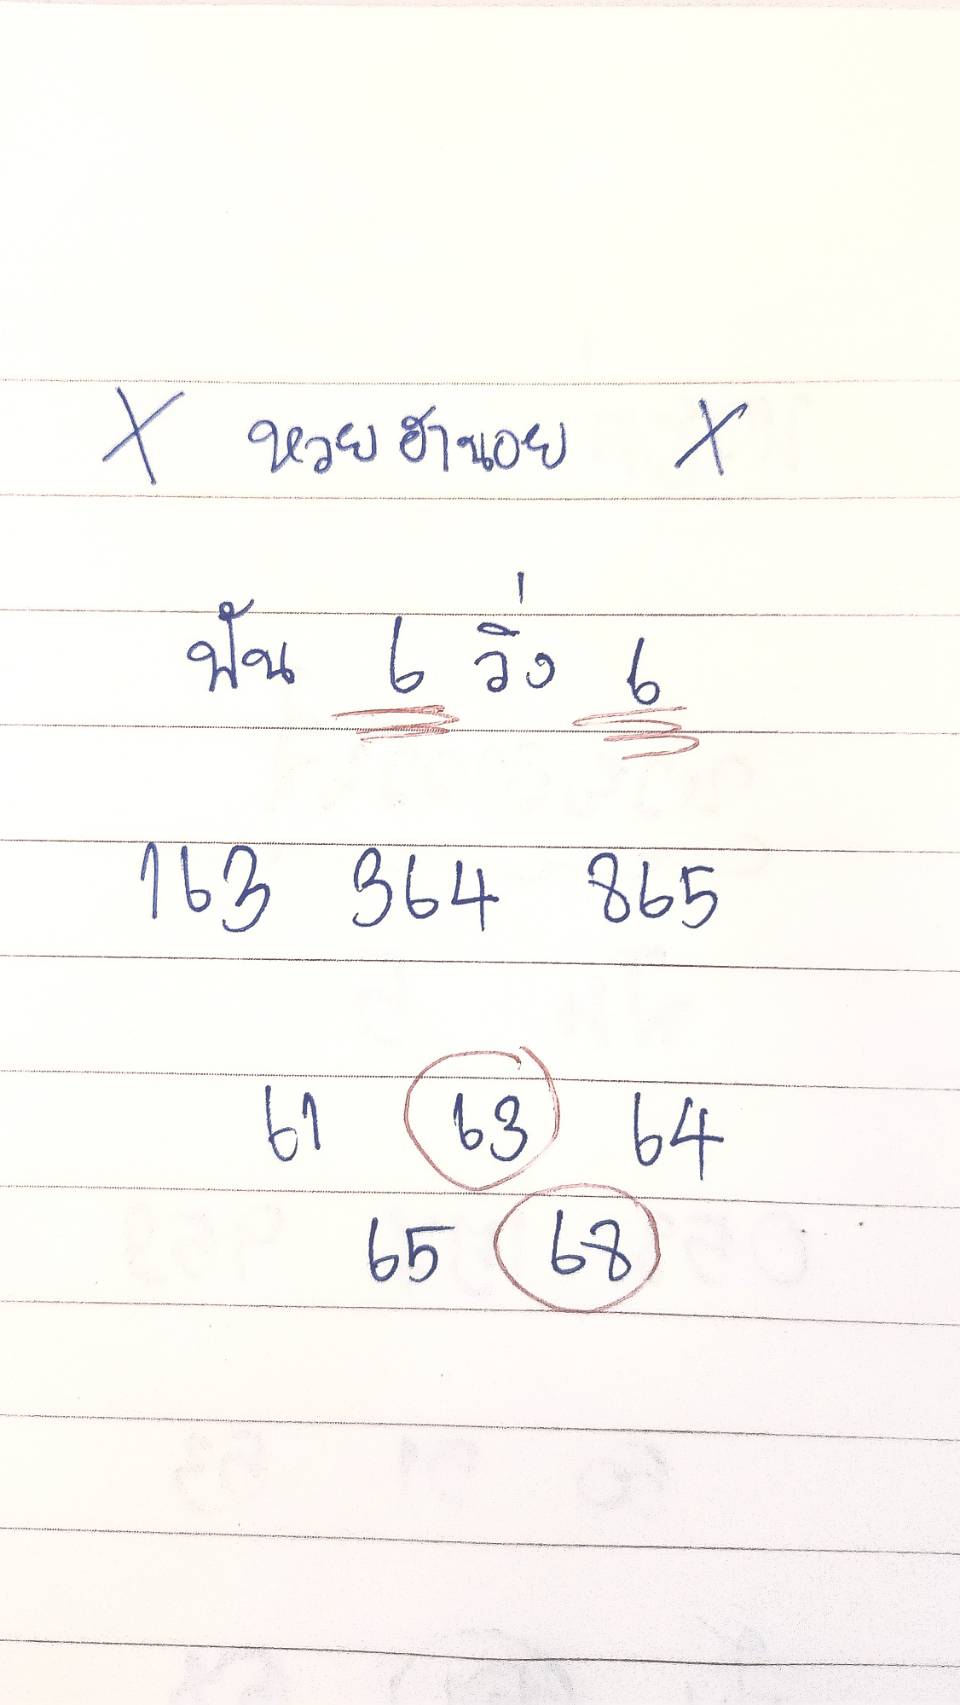 X หวยฮานอย X
ฟัน 6 วิ่ง 6
163 364 865
61 63 64
65 68